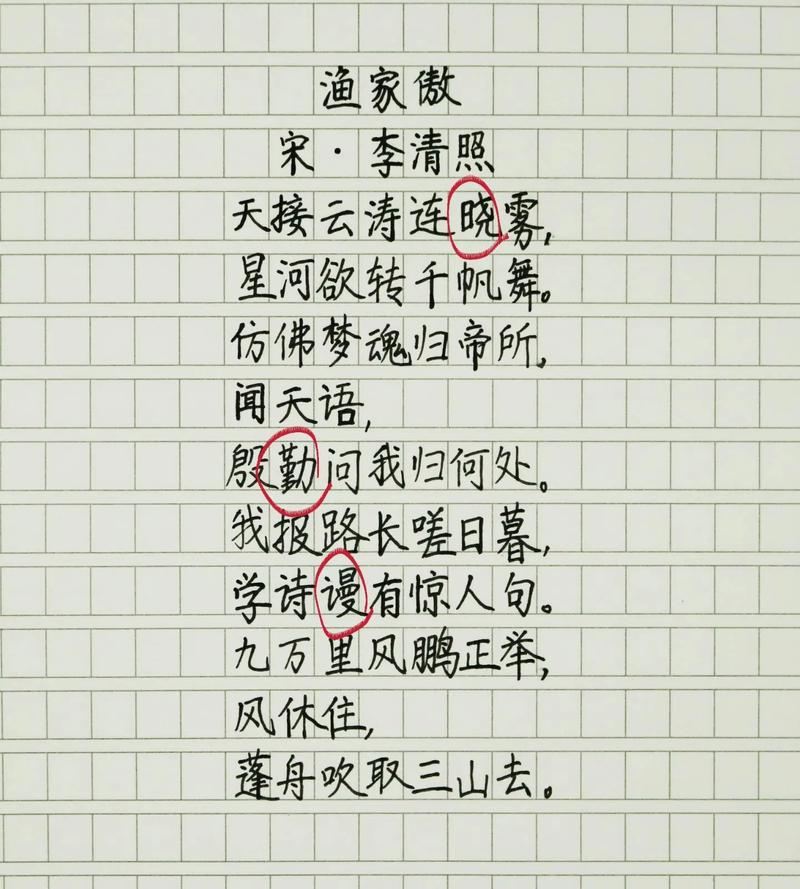 渔家傲
宋·李清照
天接云涛连晓雾,
星河欲转千帆舞。
仿佛梦魂归帝所,
闻天语,
殷勤问我归何处。
我报路长嗟日暮,
学诗谩有惊人句。
九万里风鹏正举,
风休住,
蓬舟吹取三山去。